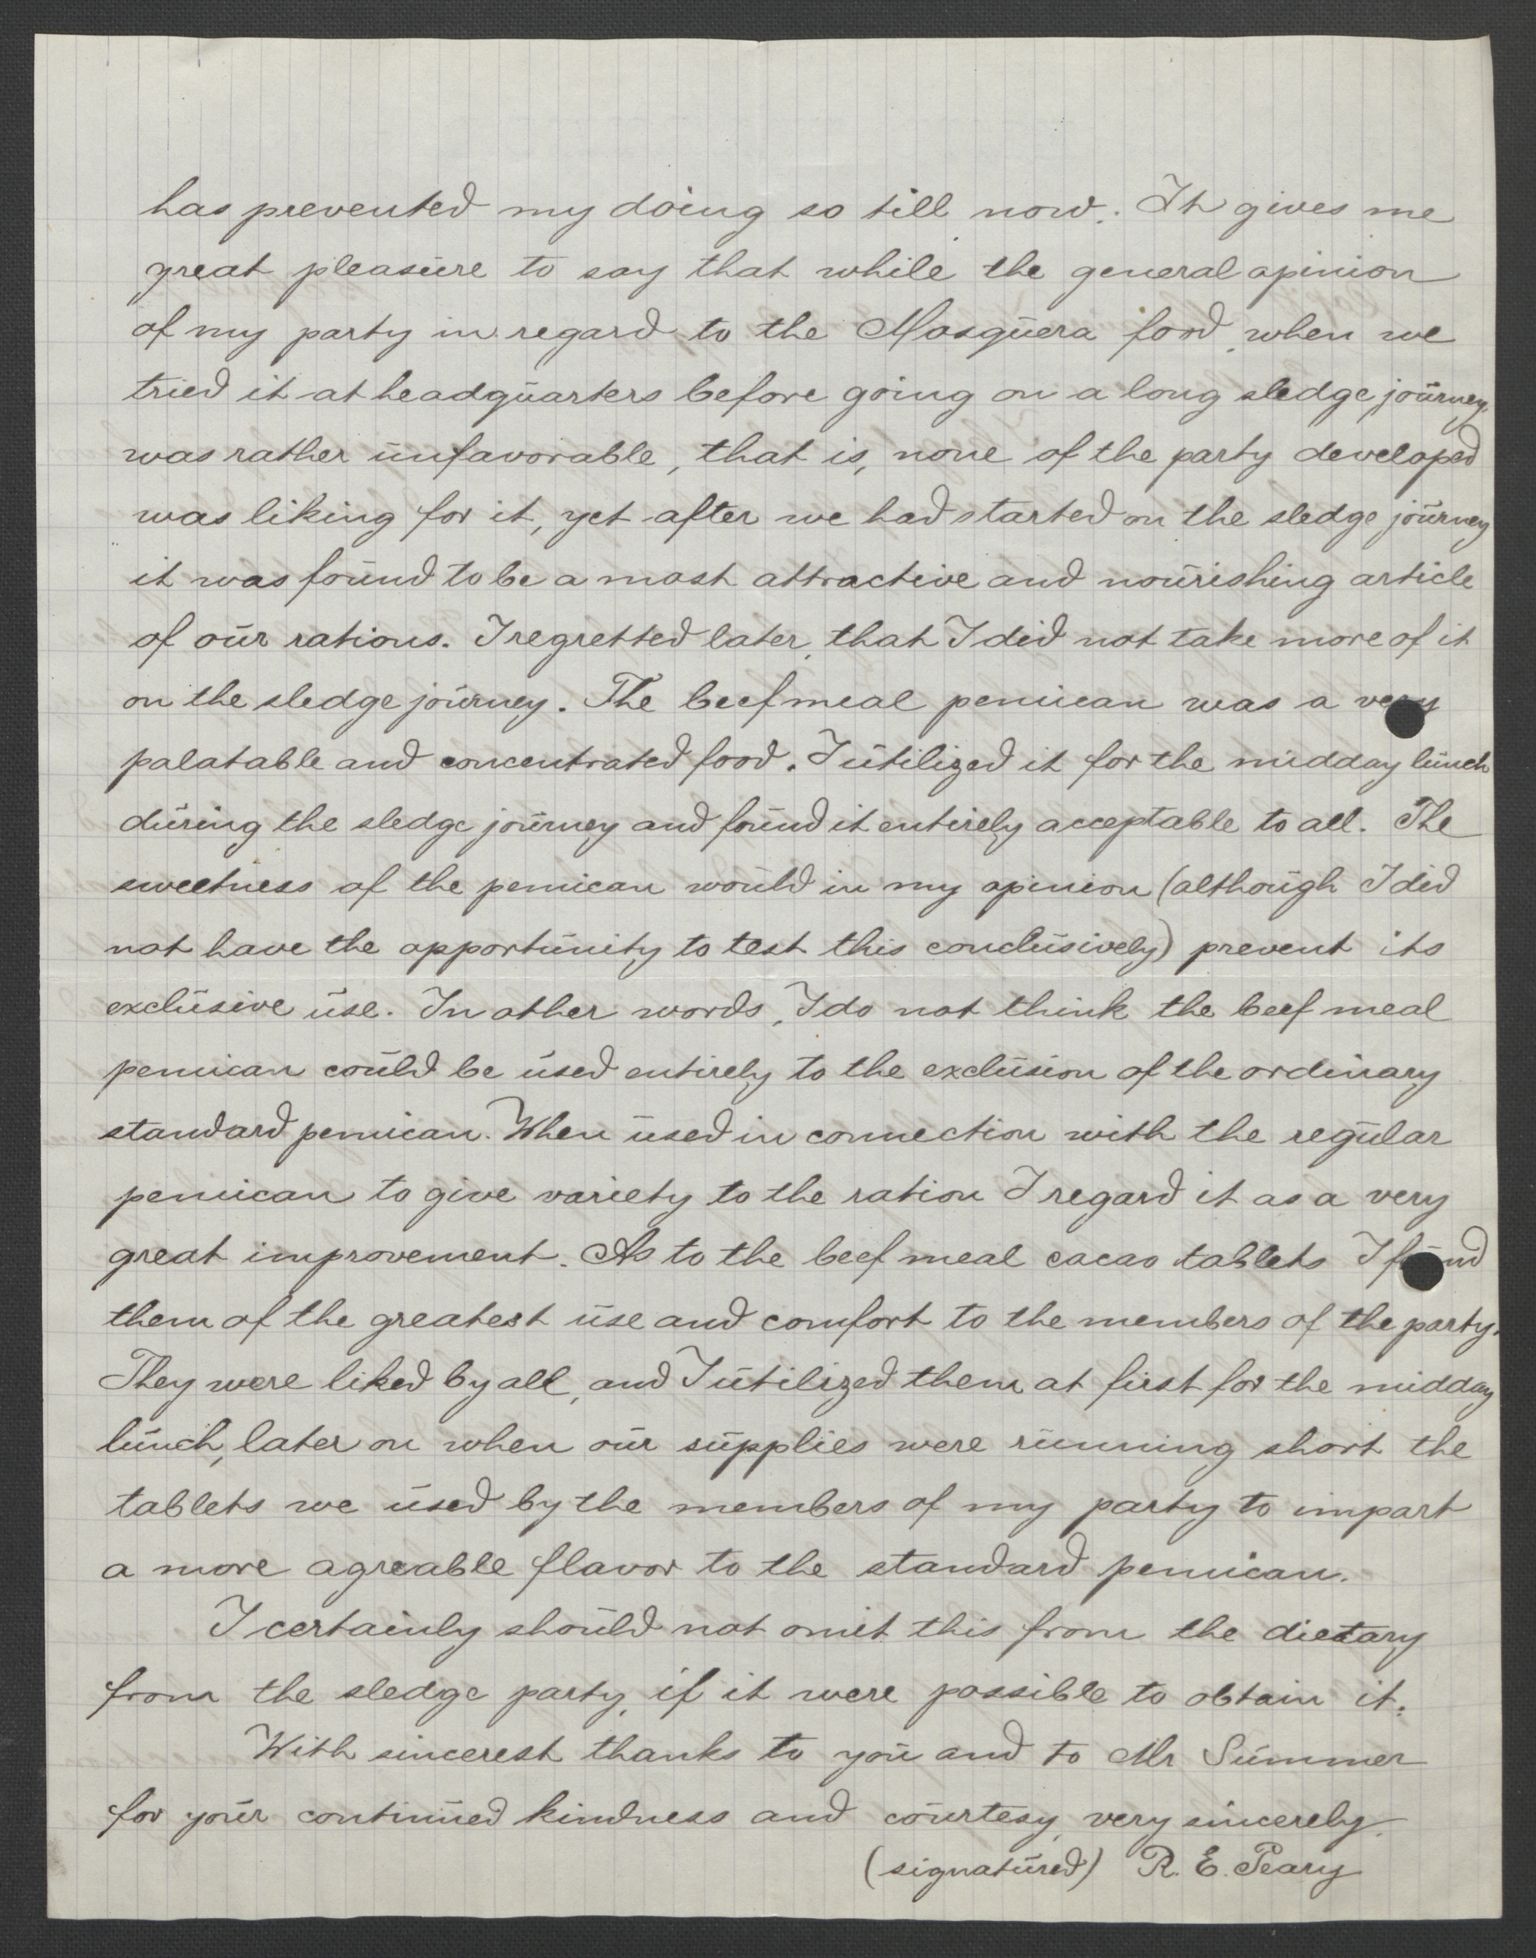 has prevented my doing so till now. It gives me
great pleasure to say that while the general opinion
of my party in regard to the Mosquera food, when we
tried it at headquarters before going on a long sledge journey,
was rather unfavorable, that is, none of the party developed
was liking for it, yet after we had started on the sledge journey
it was found to be a most attractive and nourishing article
of our rations. I regretted later, that I did not take more of it
on the sledge journey. The beef meal pemican was a very
palatable and concentrated food. I utilized it for the midday lunch
during the sledge journey and found it entirely acceptable to all. The
sweetness of the pemican would in my opinion (although I did
not have the opportunity to test this conclusively) prevent its
exclusive use. In other words, I do not think the beef meal
pemican could be used entirely to the exclusion of the ordinary
standard pemican. When used in connection with the regular
pemican to give variety to the ration I regard it as a very
great improvement. As to the beef meal cacao tablets I found
them of the greatest use and comfort to the members of the party.
They were liked by all, and I utilized them at first for the midday
lunch, later on when our supplies were running short the
tablets we used by the members of my party to impart
a more agreable flavor to the standard pemican.
I certainly should not omit this from the dietary
from the sledge party, if it were possible to obtain it.
With sincerest thanks to you and to Mr Summer
for your continued kindness and courtesy, very sincerely.
(signatured) R. E. Peary